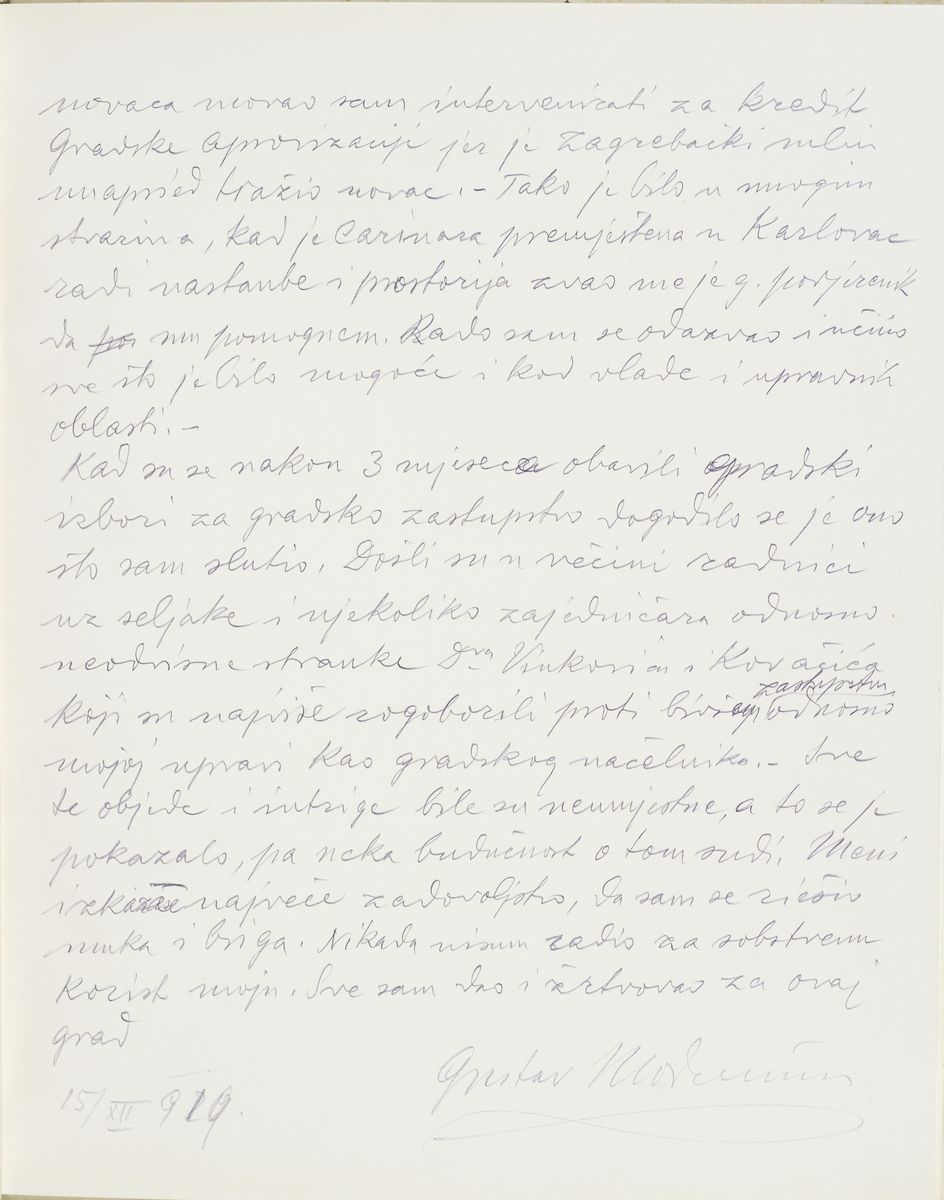 novaca morao sam intervenirati za kredit
Gradske aprovizacije jer je Zagrebački mlin
unapried tražio novac. – Tako je bilo u mnogim
stvarima, kad je Carinara premještena u Karlovac
radi nastambe i prostorija zvao me je g. povjerenik
da mu pomognem. Rado sam se odazvao i učinio
sve što je bilo moguće i kod vlade i upravnih
oblasti. –
Kad su se nakon 3 mjeseca obavili gradski
izbori za gradsko zastupstvo dogodilo se je ono
što sam slutio. Došli su u večini radnici
uz seljake i njekoliko zajedničara odnosno
neodvisne stranke Dra Vinković i Kovačića
zastupstvu
koji su najviše rogoborili proti bivšem odnosno
mojoj upravi kao gradskog načelnika. – Sve
te objede i intrige bile su neumjestne, a to se je
pokazalo, pa neka budućnost o tom sudi. Meni
najveće zadovoljstvo, da sam se riešio
muka i briga. Nikada nisam radio za sobstvenu
korist moju. Sve sam dao i žrtvovao za ovaj
grad
Gustav Modrušan
15/XII 919.